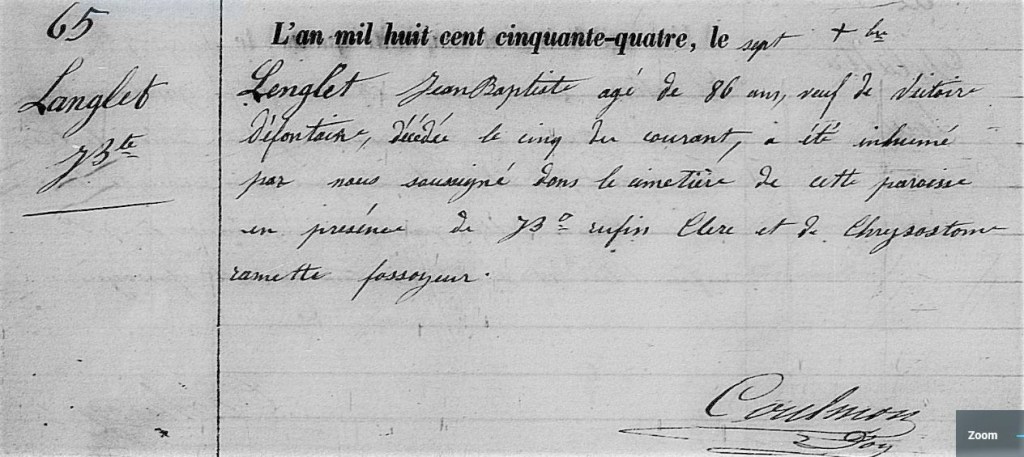 65
Langlet
JBte
L'an mil huit cent cinquante-quatre, le sept Xbre
Lenglet Jean Baptiste agé de 86 ans, veuf de Victoire
Défontaine, décédée le cinq du courant, a été inhumé
par nous soussigné dons le cimetière de cette paroisse
en présence de JB rufin Clerc et de Chrysostome
ramette fossoyeur.
Coulmon
Doy
Zoom